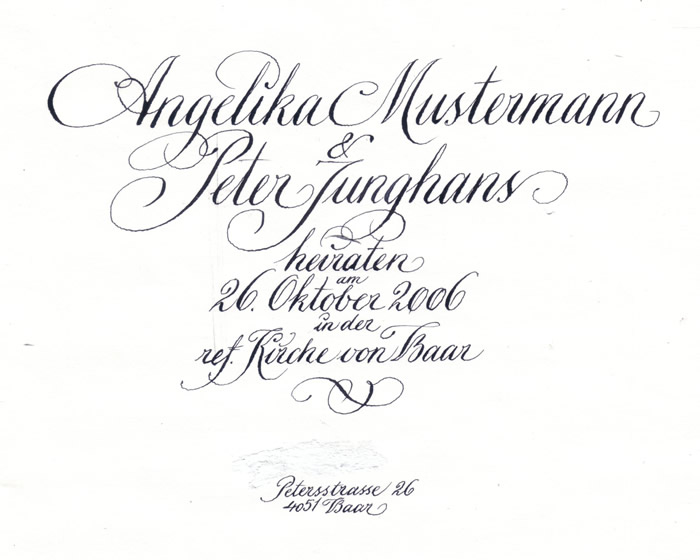 Angelika Mustermann
&
Peter Junghans
heiraten
am
26. Oktober 2006
in der
ref. Kirche von Baar
Petersstrasse 26
4051 Baar